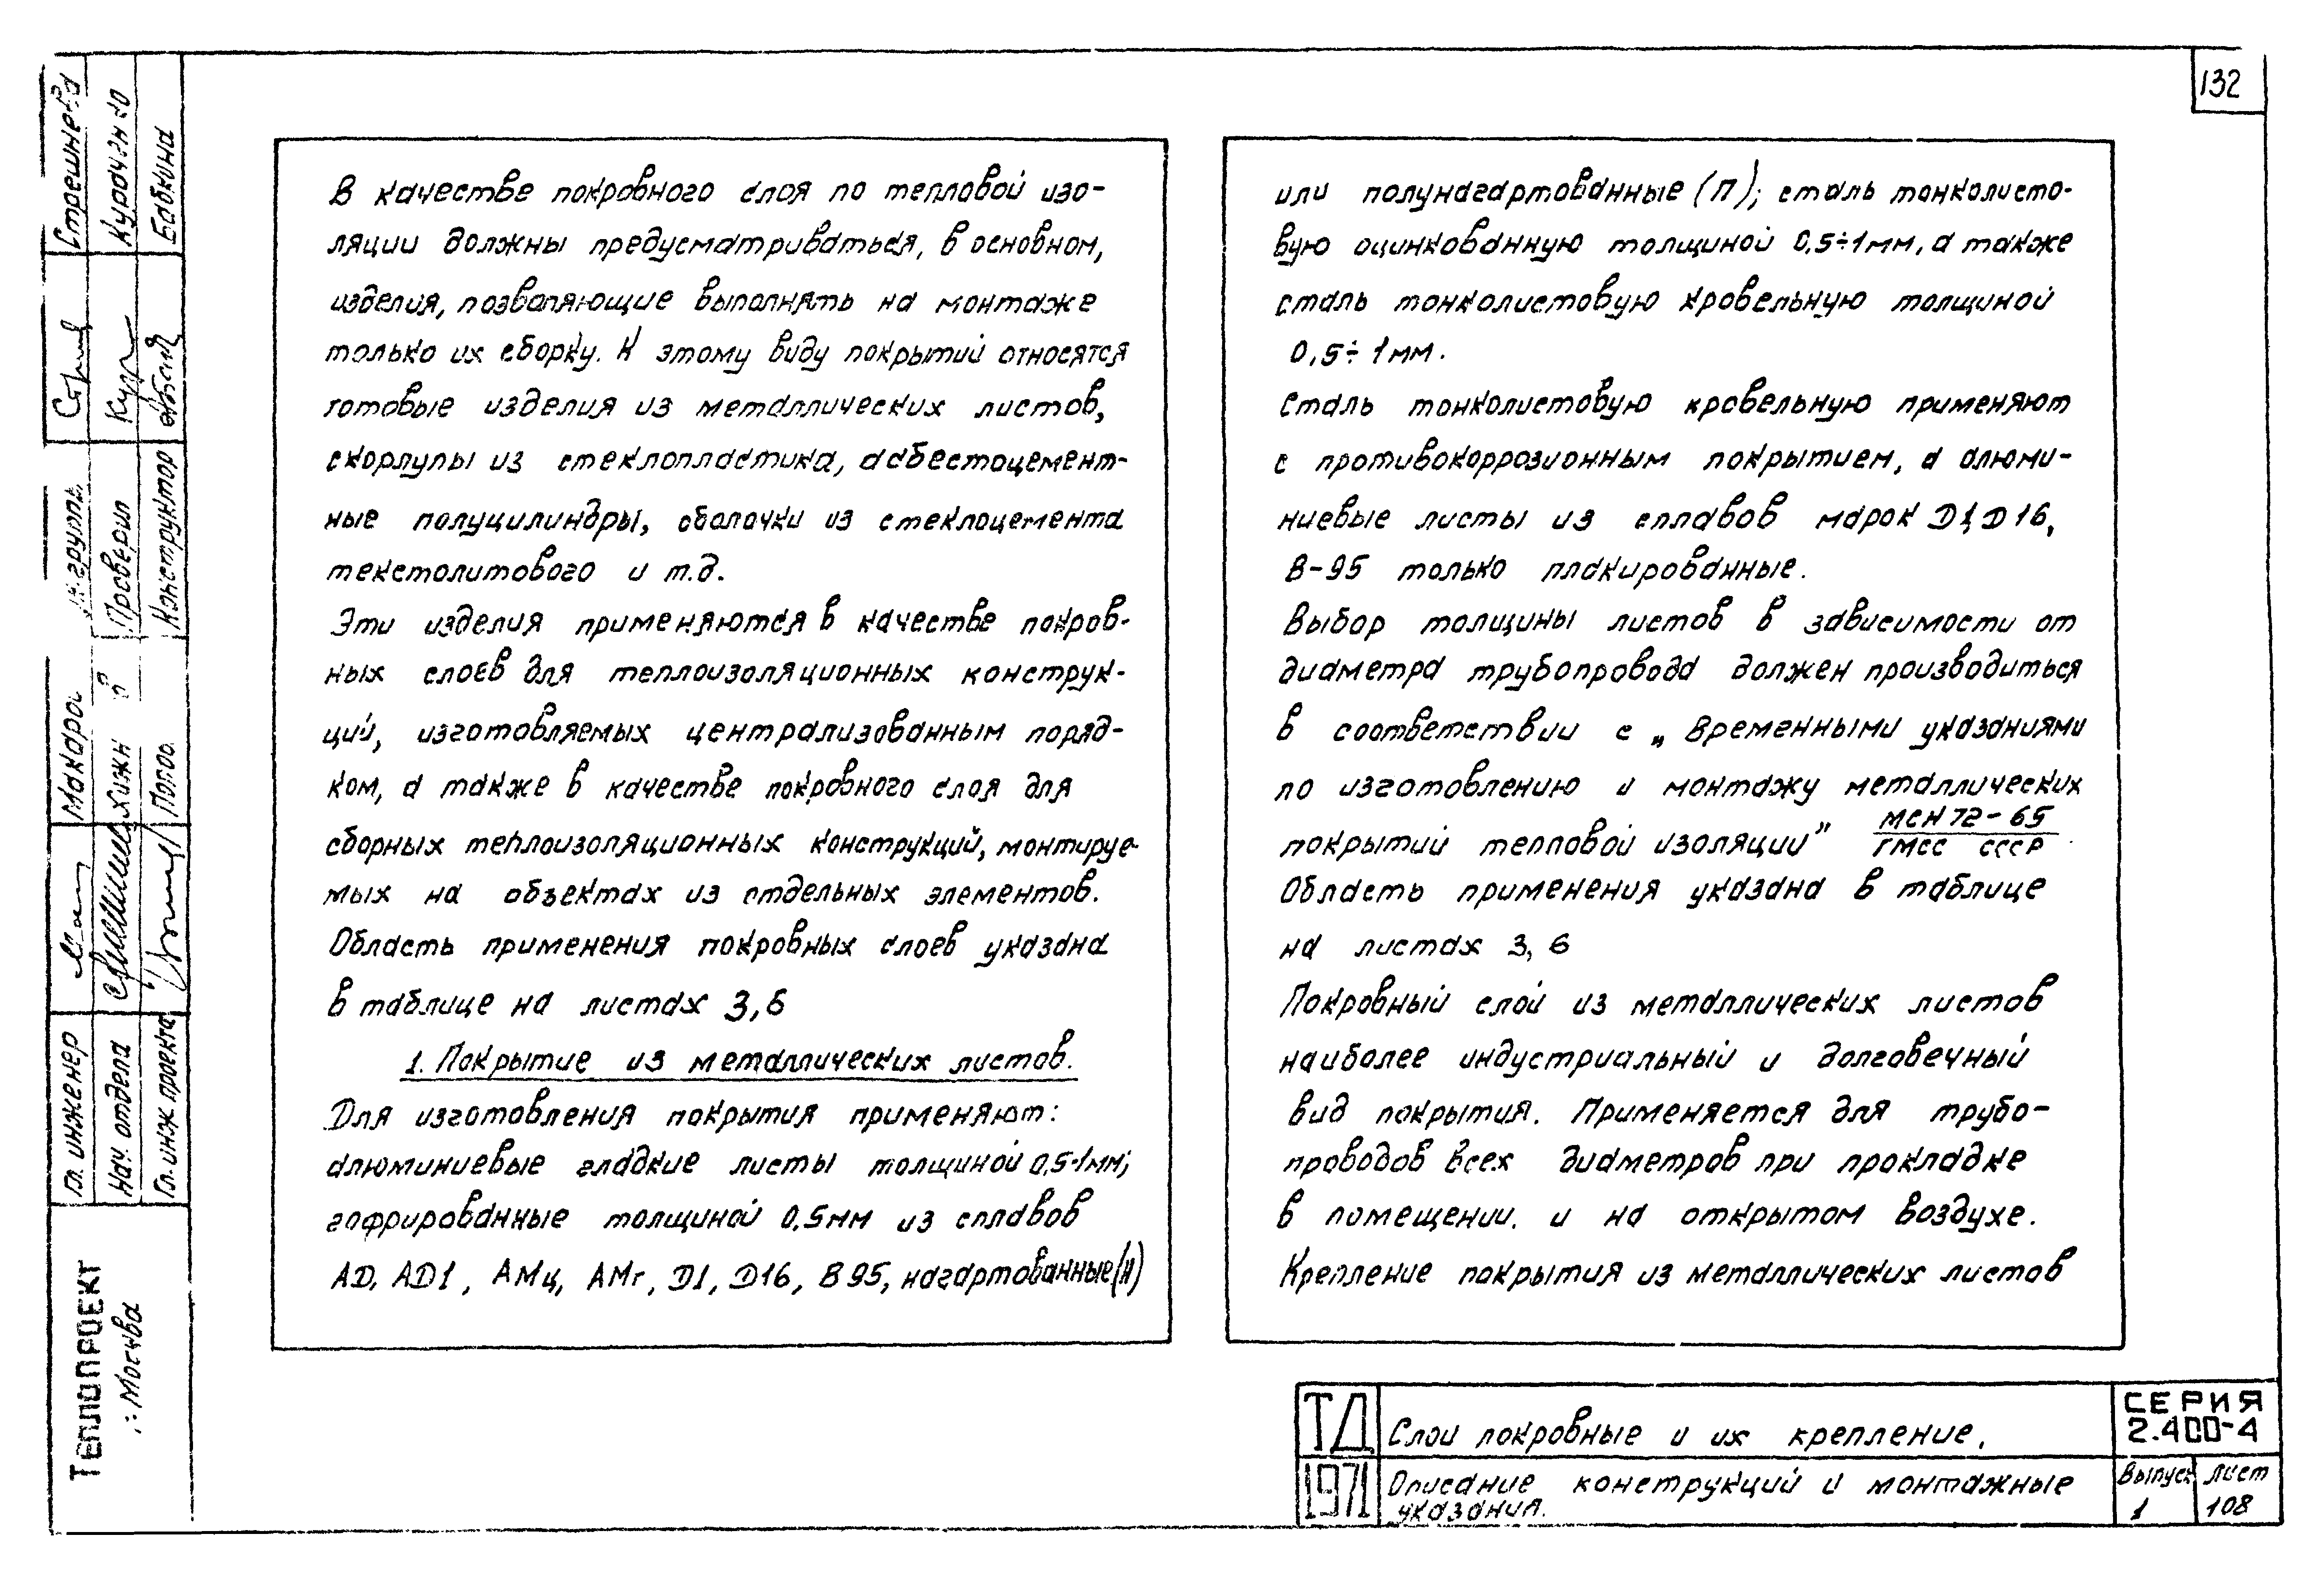 132
В качестве покровного слоя по тепловой изо-
ляции должны предусматриваться, в основном,
изделия, позволяющие выполнять на монтаже
только их сборку. К этому виду покрытий относятся
готовые изделия из металлических листов,
скорлупы из стеклопластика, асбестоцемент-
ные полуцилиндры, оболочки из стеклоцемента
текстолитового и т.д.
Эти изделия применяются в качестве покров-
ных слоев для теплоизоляционных конструк-
ций, изготовляемых централизованным поряд-
ком, а также в качестве покровного слоя для
сборных теплоизоляционных конструкций, монтируе-
мых на объектах из отдельных элементов.
Область применения покровных слоев указана
в таблице на листах 3, 6
1. Покрытие из металлических листов.
Для изготовления покрытия применяют:
алюминиевые гладкие листы толщиной 0,5-1мм;
гофрированные толщиной 0.5мм из сплавов
АД, АД1, АМц, АМг, Д1, Д16, В95, нагартованные(Н)
или полунагартованные (П); сталь тонколисто-
вую оцинкованную толщиной 0,5÷1мм, а также
сталь тонколистовую кровельную толщиной
0,5÷1мм.
Сталь тонколистовую кровельную применяют
с противокоррозионным покрытием, а алюми-
ниевые листы из сплавов марок Д1, Д16,
В-95 только плакированные.
Выбор толщины листов в зависимости от
диаметра трубопровода должен производиться
в соответствии с „Временными указаниями
по изготовлению и монтажу металлических
покрытий тепловой изоляции" МСН 72-65
ГМСС СССР
Область применения указана в таблице
на листах 3, 6
Покровный слой из металлических листов
наиболее индустриальный и долговечный
вид покрытия. Применяется для трубо-
проводов всех диаметров при прокладке
в помещении. и на открытом воздухе.
Крепление покрытия из металлических листов
ТД
1971
Слои покровные и их крепление.
Описание конструкций и монтажные
указания.
СЕРИЯ
2.400-4
Выпуск
1
Лист
108
Стрешнева
Бабкина
Проверил
Конструктор
Гл. инженер
Нач. отдела
Гл. инж. проекта
ТЕПЛОПРОЕКТ
Москва